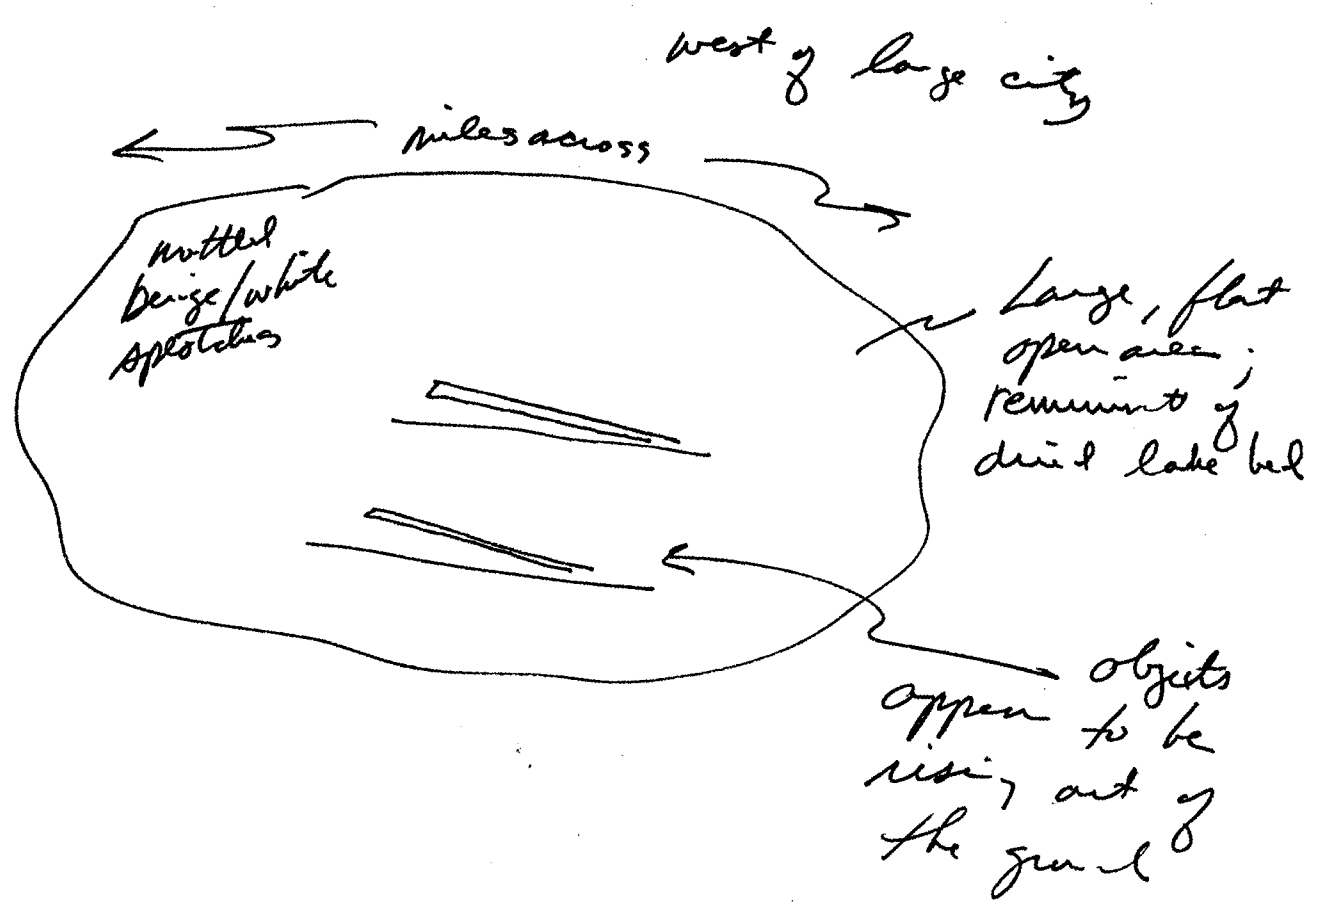 west of large city
miles across
mottled
beige/white
splotches
Large, flat
open area;
reminisent of
dried lake bed
objects
appear to be
rising out of
the ground